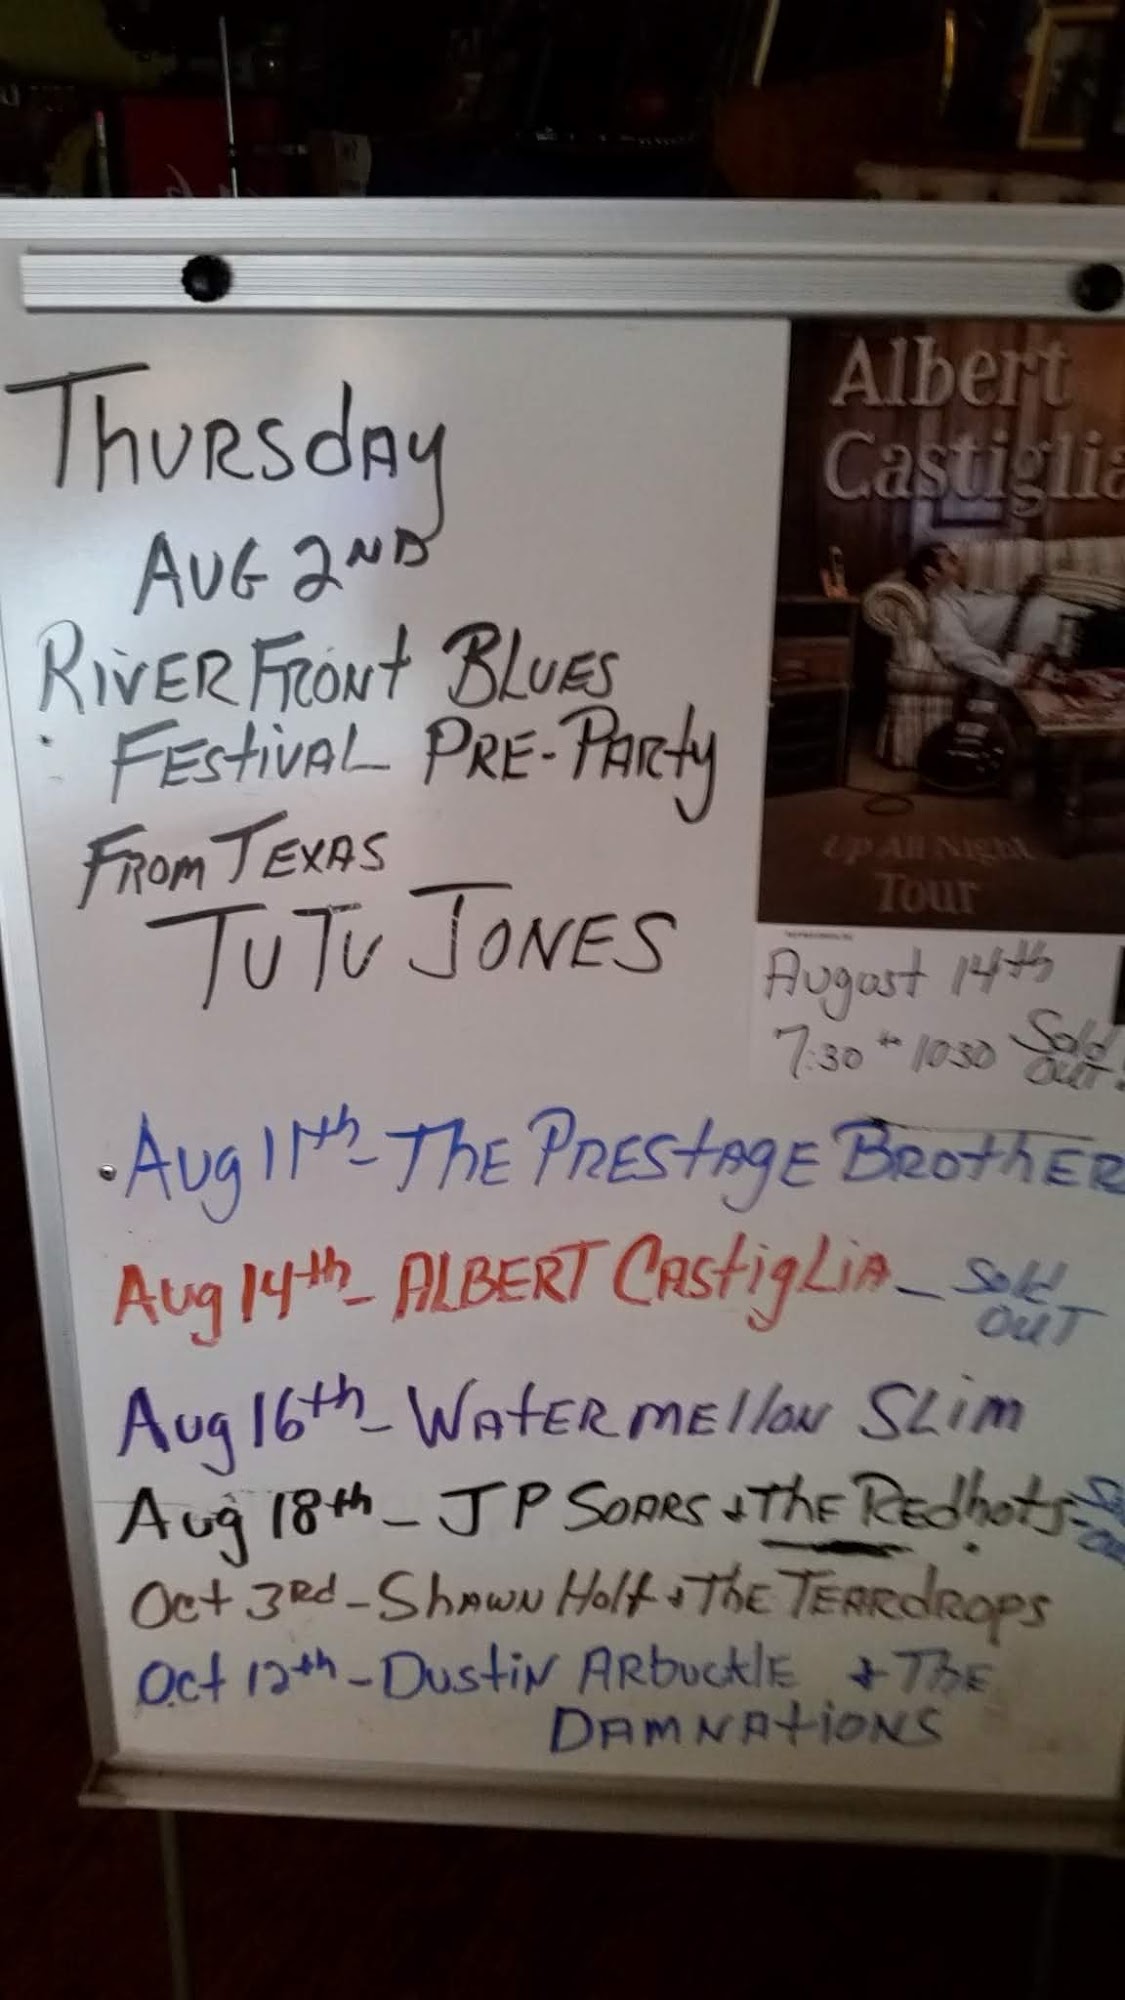 Thursday
Aug 2ND
RiverFront Blues
Festival Pre-Party
From Texas
TuTu Jones
Albert
Castiglia
Up All Night
Tour
August 14th
7:30 to 1030 Sold
out!
Aug 11th - The Prestage Brother
Aug 14th - Albert Castiglia - Sold
out
Aug 16th - Watermellon Slim
Aug 18th - JP Soars & The Redhots -
Oct 3rd - Shawn Holt & The Teardrops
Oct 12th - Dustin Arbuckle & The
Damnations